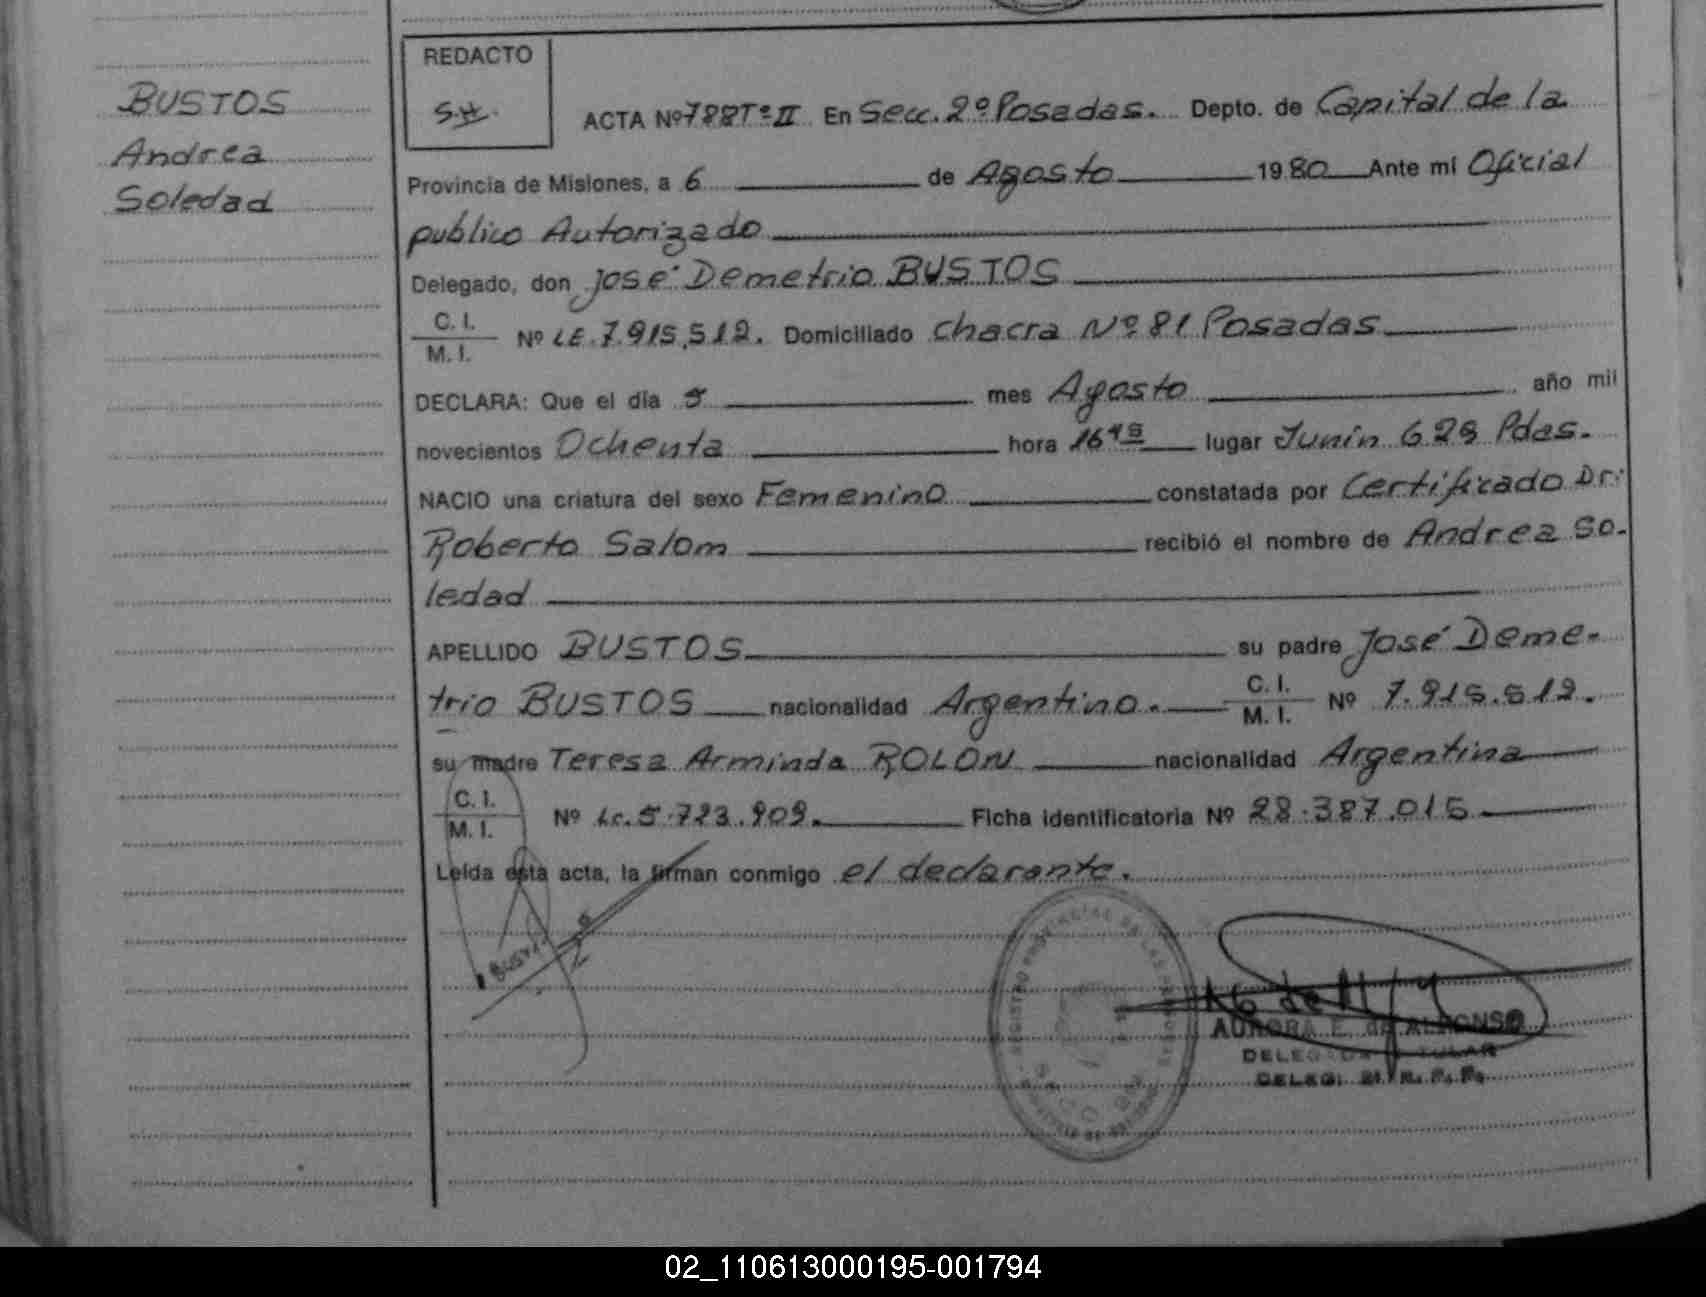 BUSTOS
Andrea
Soledad
REDACTO
ACTA Nº 788 Tº II En Secc. 2º Posadas. Depto. de Capital de la
Provincia de Misiones, a 6 de Agosto 1980 Ante mí Oficial
publico Autorizado
Delegado, don José Demetrio BUSTOS
C. I.
M. I. Nº LE. 7.915.512. Domiciliado chacra Nº 81 Posadas
DECLARA: Que el día 5 mes Agosto año mil
novecientos Ochenta hora 16 lugar Junín 628 Pdas.
NACIO una criatura del sexo Femenino constatada por Certificado Dr.
Roberto Salom recibió el nombre de Andrea So-
ledad
APELLIDO BUSTOS su padre José Deme-
trio BUSTOS nacionalidad Argentino. C. I.
M. I. Nº 7.915.512.
su madre Teresa Arminda ROLON nacionalidad Argentina
C. I.
M. I. Nº Lc. 5.723.909. Ficha identificatoria Nº 28.387.015
Leída esta acta, la firman conmigo el declarante.
AURORA E. de ALFONSO
DELEGADA TITULAR
DELEG. R. P. P.
02_110613000195-001794